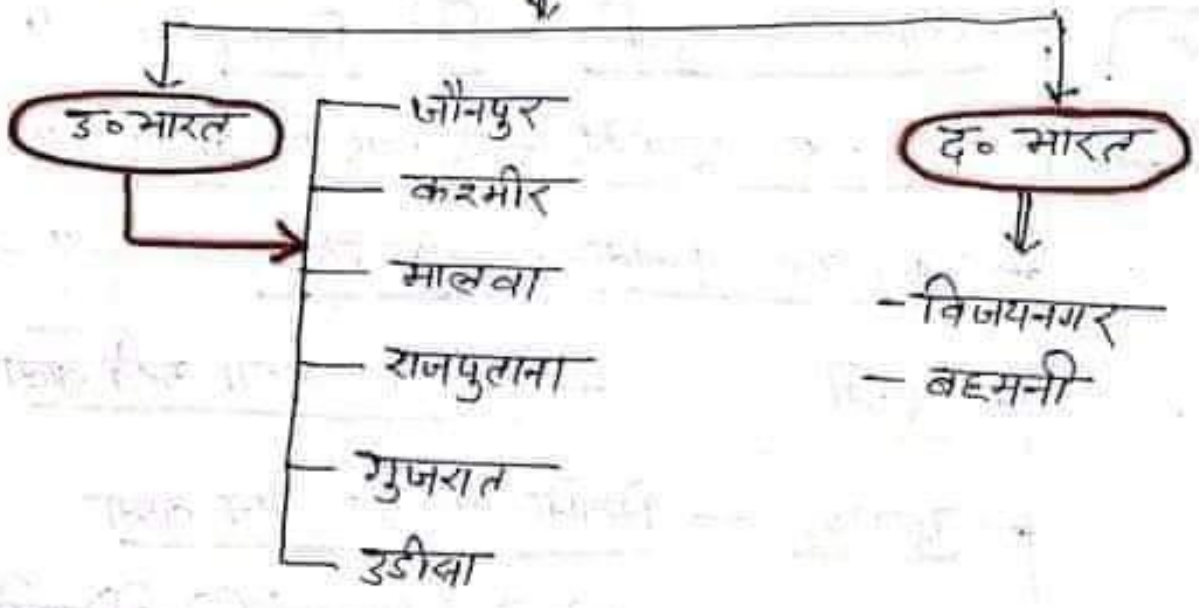 उ० भारत
जौनपुर
कश्मीर
मालवा
राजपुताना
गुजरात
उडीसा
द० भारत
- विजयनगर
- बहमनी